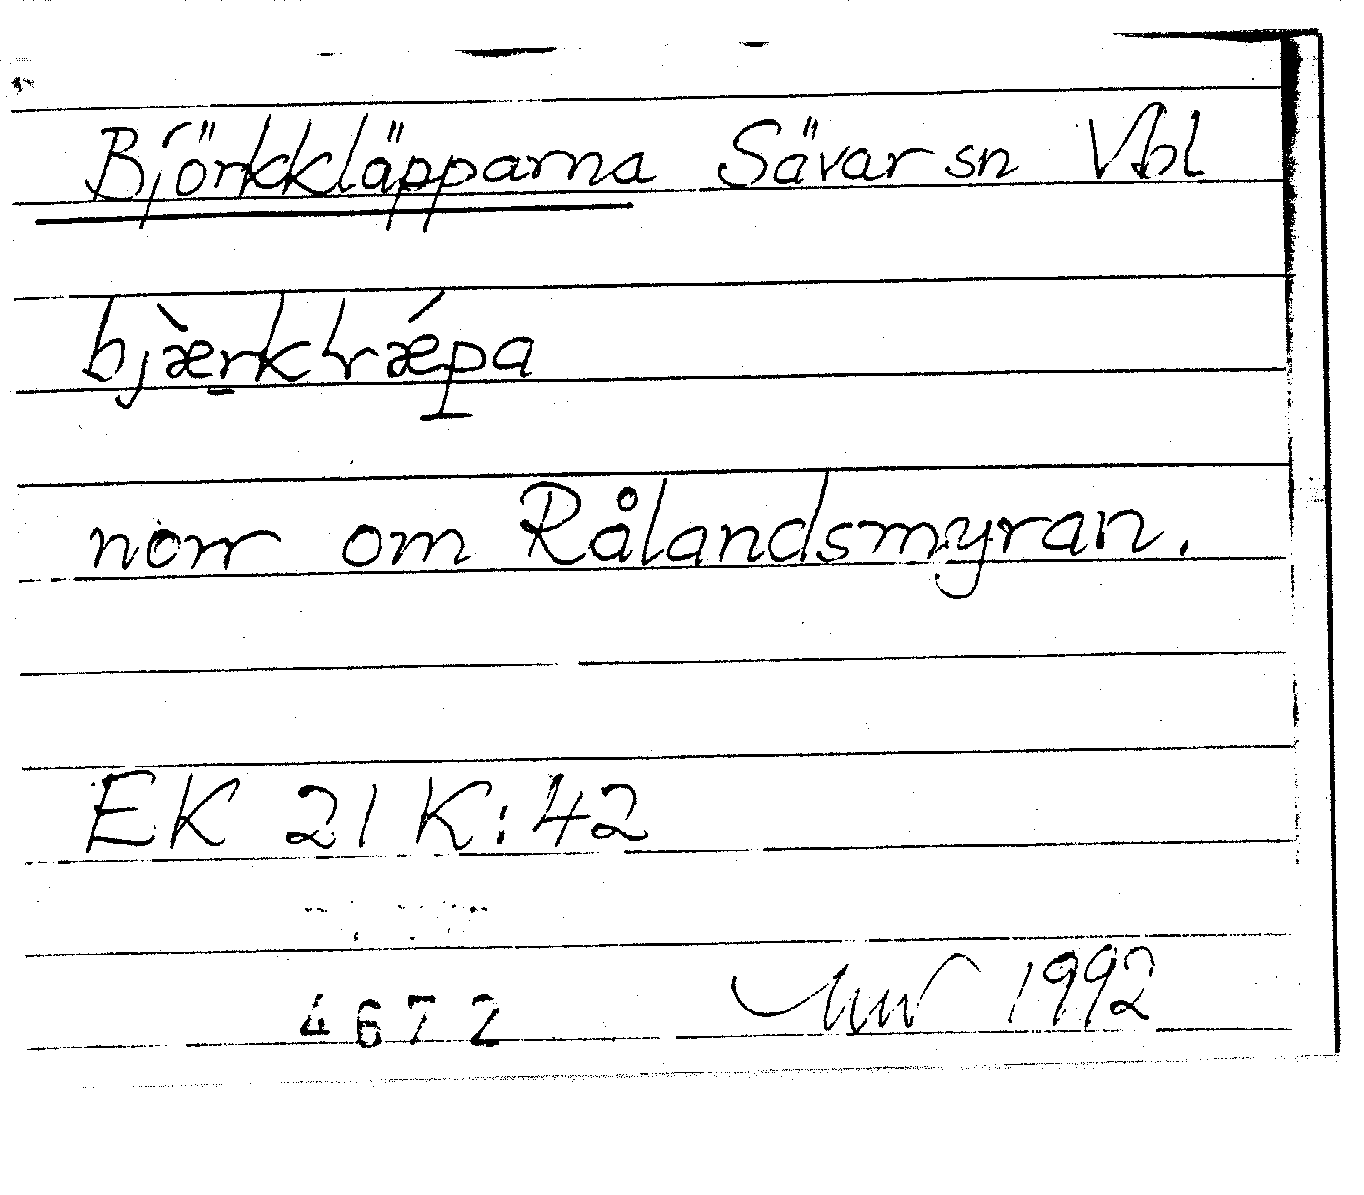 Björkkläpparna Sävar sn Vbl
bjæ̀ṟkhrǽp̱a
norr om Rålandsmyran.
EK 21 K:42
4672 1992